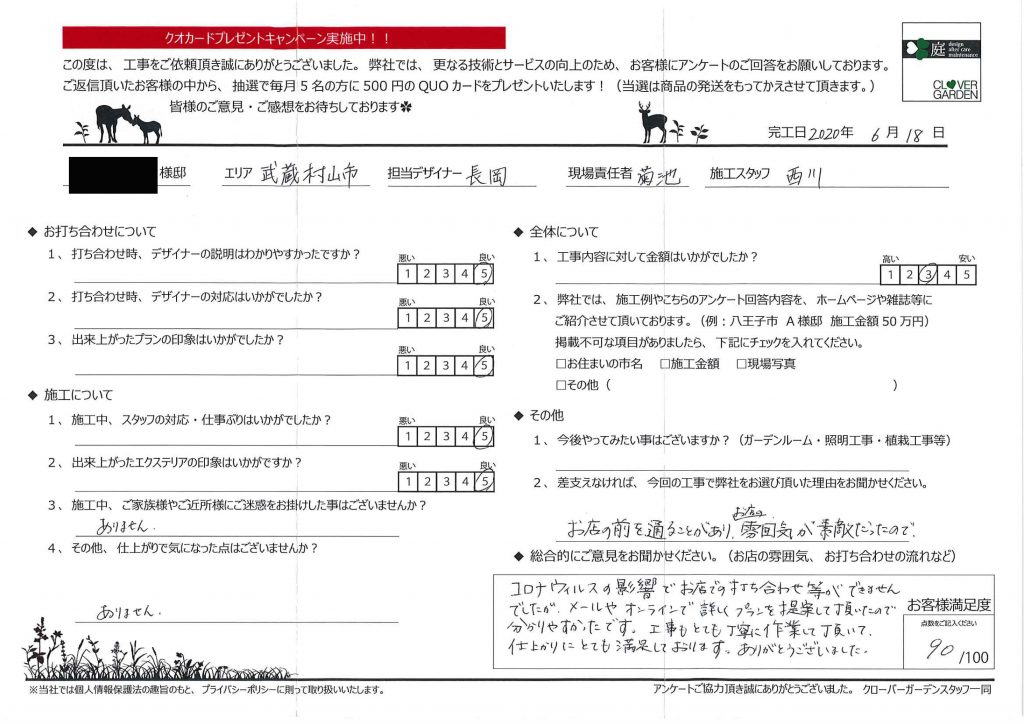 クオカードプレゼントキャンペーン実施中！！
この度は、工事をご依頼頂き誠にありがとうございました。弊社では、更なる技術とサービスの向上のため、お客様にアンケートのご回答をお願いしております。
ご返信頂いたお客様の中から、抽選で毎月5名の方に500円のQUOカードをプレゼントいたします！（当選は商品の発送をもってかえさせて頂きます。）
皆様のご意見・ご感想をお待ちしております✽
庭 design after care maintenance
CLOVER GARDEN
完工日 2020年 6月 18日
様邸 エリア 武蔵村山市 担当デザイナー 長岡 現場責任者 菊池 施工スタッフ 西川
◆ お打ち合わせについて
1、打ち合わせ時、デザイナーの説明はわかりやすかったですか？
悪い 良い
1 2 3 4 5
2、打ち合わせ時、デザイナーの対応はいかがでしたか？
悪い 良い
1 2 3 4 5
3、出来上がったプランの印象はいかがでしたか？
悪い 良い
1 2 3 4 5
◆ 施工について
1、施工中、スタッフの対応・仕事ぶりはいかがでしたか？
悪い 良い
1 2 3 4 5
2、出来上がったエクステリアの印象はいかがですか？
悪い 良い
1 2 3 4 5
3、施工中、ご家族様やご近所様にご迷惑をお掛けした事はございませんか？
ありません.
4、その他、仕上がりで気になった点はございませんか？
ありません.
◆ 全体について
1、工事内容に対して金額はいかがでしたか？
高い 安い
1 2 3 4 5
2、弊社では、施工例やこちらのアンケート回答内容を、ホームページや雑誌等に
ご紹介させて頂いております。（例：八王子市 A様邸 施工金額50万円）
掲載不可な項目がありましたら、下記にチェックを入れてください。
□お住まいの市名 □施工金額 □現場写真
□その他（ ）
◆ その他
1、今後やってみたい事はございますか？（ガーデンルーム・照明工事・植栽工事等）
2、差支えなければ、今回の工事で弊社をお選び頂いた理由をお聞かせください。
お店の前を通ることがあり、お店の雰囲気が素敵だったので.
◆ 総合的にご意見をお聞かせください。（お店の雰囲気、お打ち合わせの流れなど）
コロナウィルスの影響でお店での打ち合わせ等ができません
でしたが、メールやオンラインで詳しくプランを提案して頂いたので
分かりやすかったです。工事もとても丁寧に作業して頂いて、
仕上がりにとても満足しております。ありがとうございました.
お客様満足度
点数をご記入ください
90 /100
※当社では個人情報保護法の趣旨のもと、プライバシーポリシーに則って取り扱いいたします。
アンケートご協力頂き誠にありがとうございました。クローバーガーデンスタッフ一同